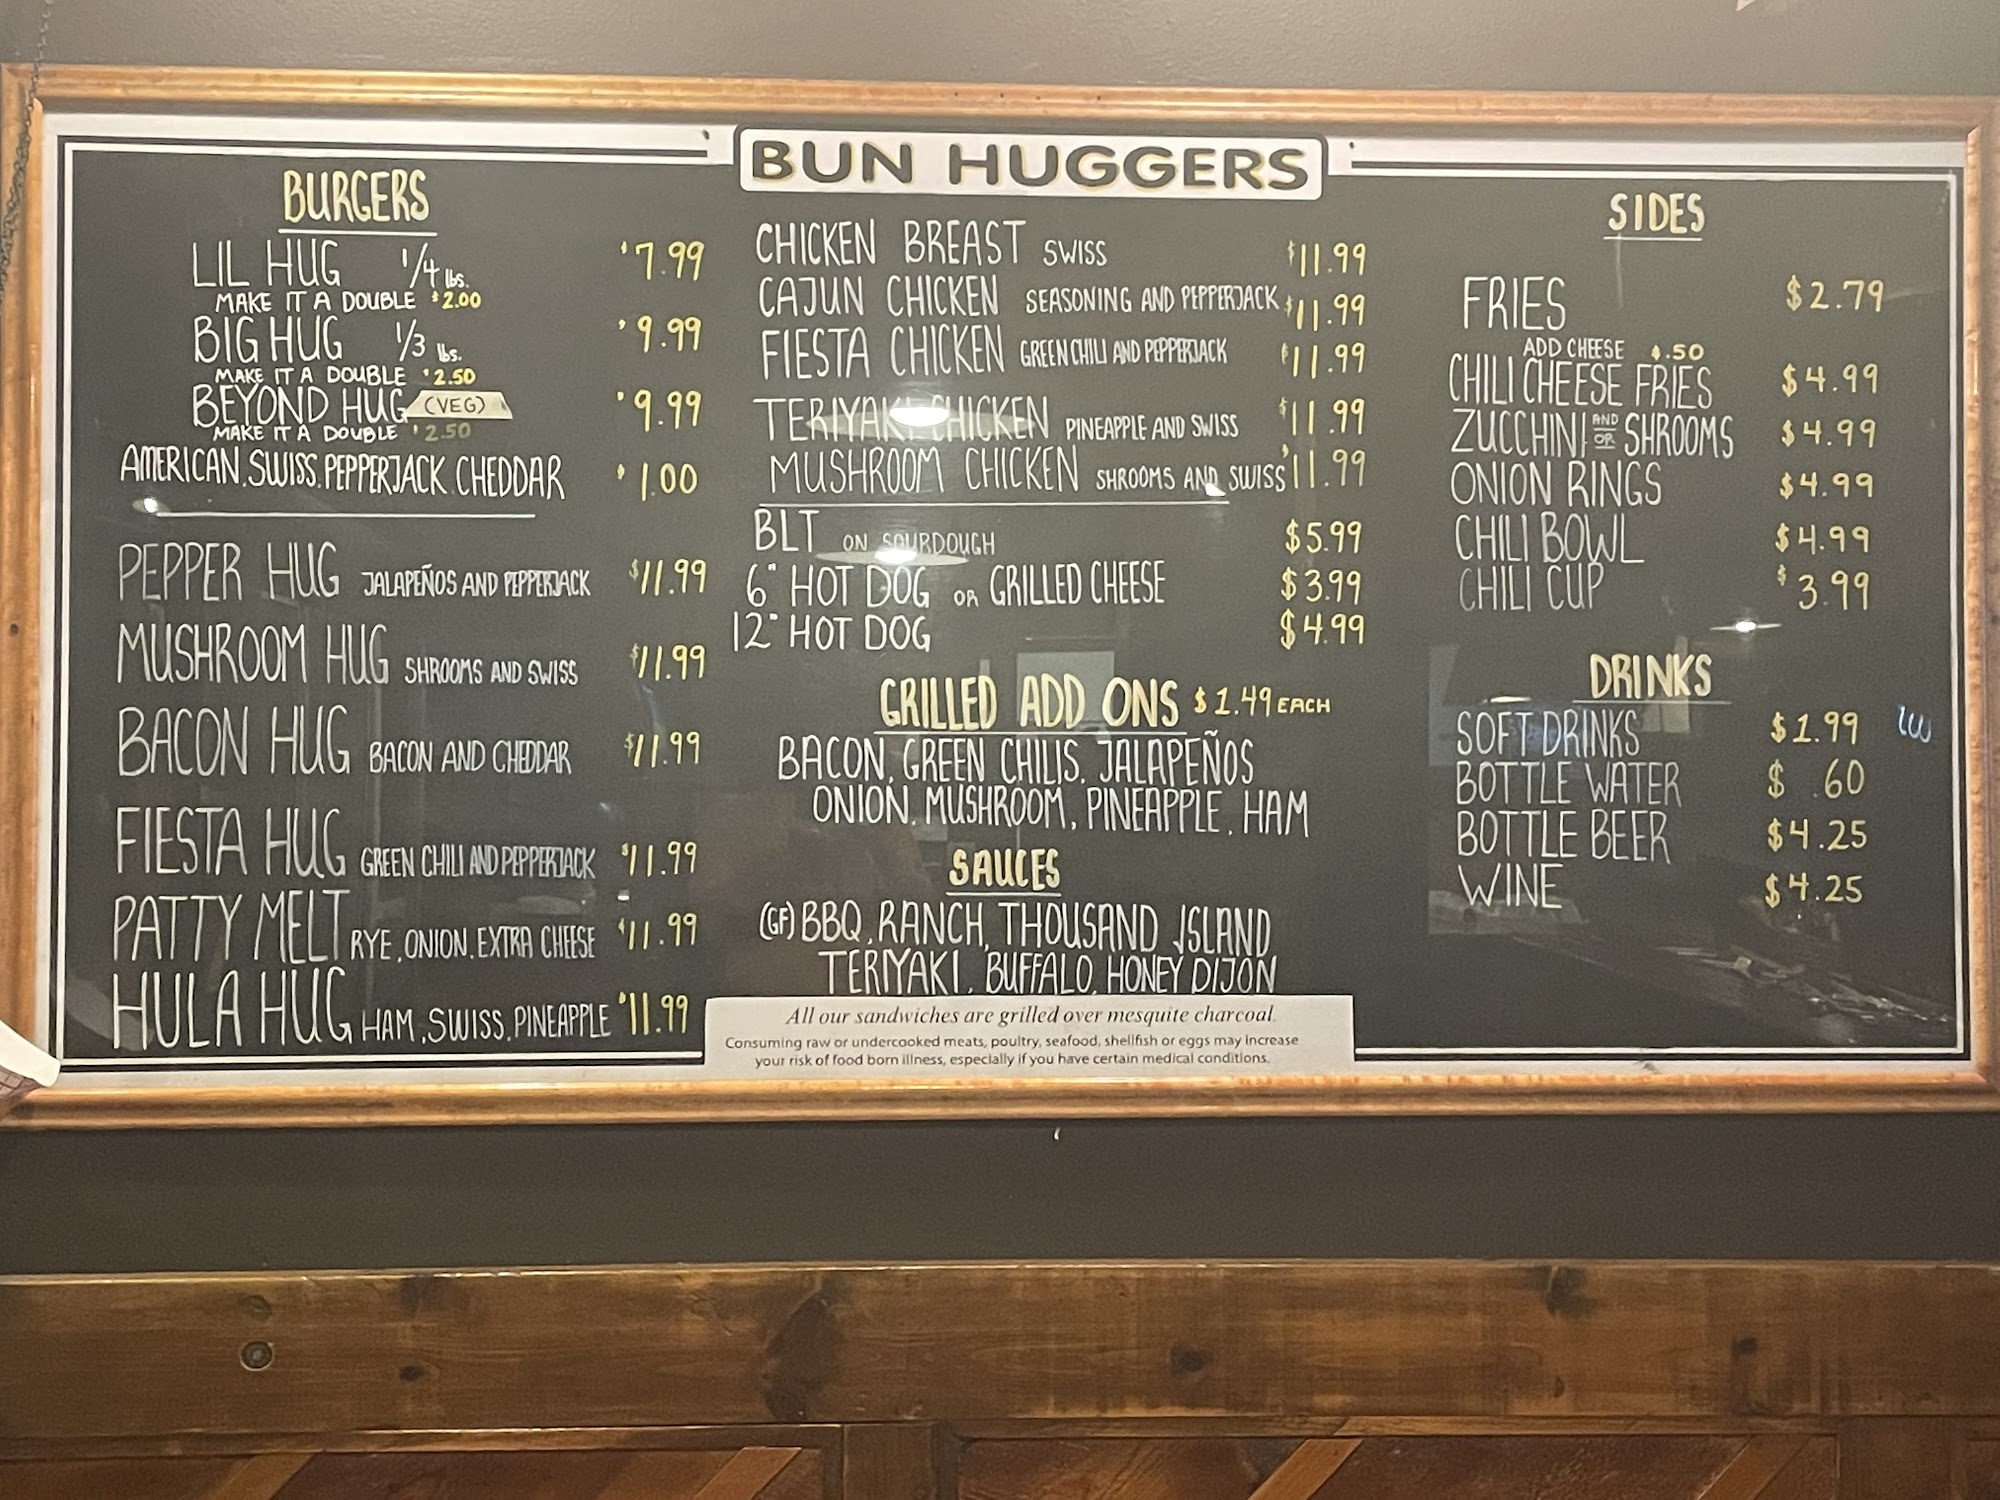 BUN HUGGERS
BURGERS
LIL HUG 1/4 lbs. $7.99
MAKE IT A DOUBLE $2.00
BIG HUG 1/3 lbs. $9.99
MAKE IT A DOUBLE $2.50
BEYOND HUG (VEG) $9.99
MAKE IT A DOUBLE $2.50
AMERICAN, SWISS, PEPPERJACK, CHEDDAR $1.00
PEPPER HUG JALAPEÑOS AND PEPPERJACK $11.99
MUSHROOM HUG SHROOMS AND SWISS $11.99
BACON HUG BACON AND CHEDDAR $11.99
FIESTA HUG GREEN CHILI AND PEPPERJACK $11.99
PATTY MELT RYE, ONION, EXTRA CHEESE $11.99
HULA HUG HAM, SWISS, PINEAPPLE $11.99
CHICKEN BREAST SWISS $11.99
CAJUN CHICKEN SEASONING AND PEPPERJACK $11.99
FIESTA CHICKEN GREEN CHILI AND PEPPERJACK $11.99
TERIYAKI CHICKEN PINEAPPLE AND SWISS $11.99
MUSHROOM CHICKEN SHROOMS AND SWISS $11.99
BLT ON SOURDOUGH $5.99
6" HOT DOG OR GRILLED CHEESE $3.99
12" HOT DOG $4.99
GRILLED ADD ONS $1.49 EACH
BACON, GREEN CHILIS, JALAPEÑOS
ONION, MUSHROOM, PINEAPPLE, HAM
SAUCES
(GF) BBQ, RANCH, THOUSAND ISLAND
TERIYAKI, BUFFALO, HONEY DIJON
All our sandwiches are grilled over mesquite charcoal.
Consuming raw or undercooked meats, poultry, seafood, shellfish or eggs may increase
your risk of food born illness, especially if you have certain medical conditions.
SIDES
FRIES $2.79
ADD CHEESE $.50
CHILI CHEESE FRIES $4.99
ZUCCHINI AND OR SHROOMS $4.99
ONION RINGS $4.99
CHILI BOWL $4.99
CHILI CUP $3.99
DRINKS
SOFT DRINKS $1.99
BOTTLE WATER $ .60
BOTTLE BEER $4.25
WINE $4.25